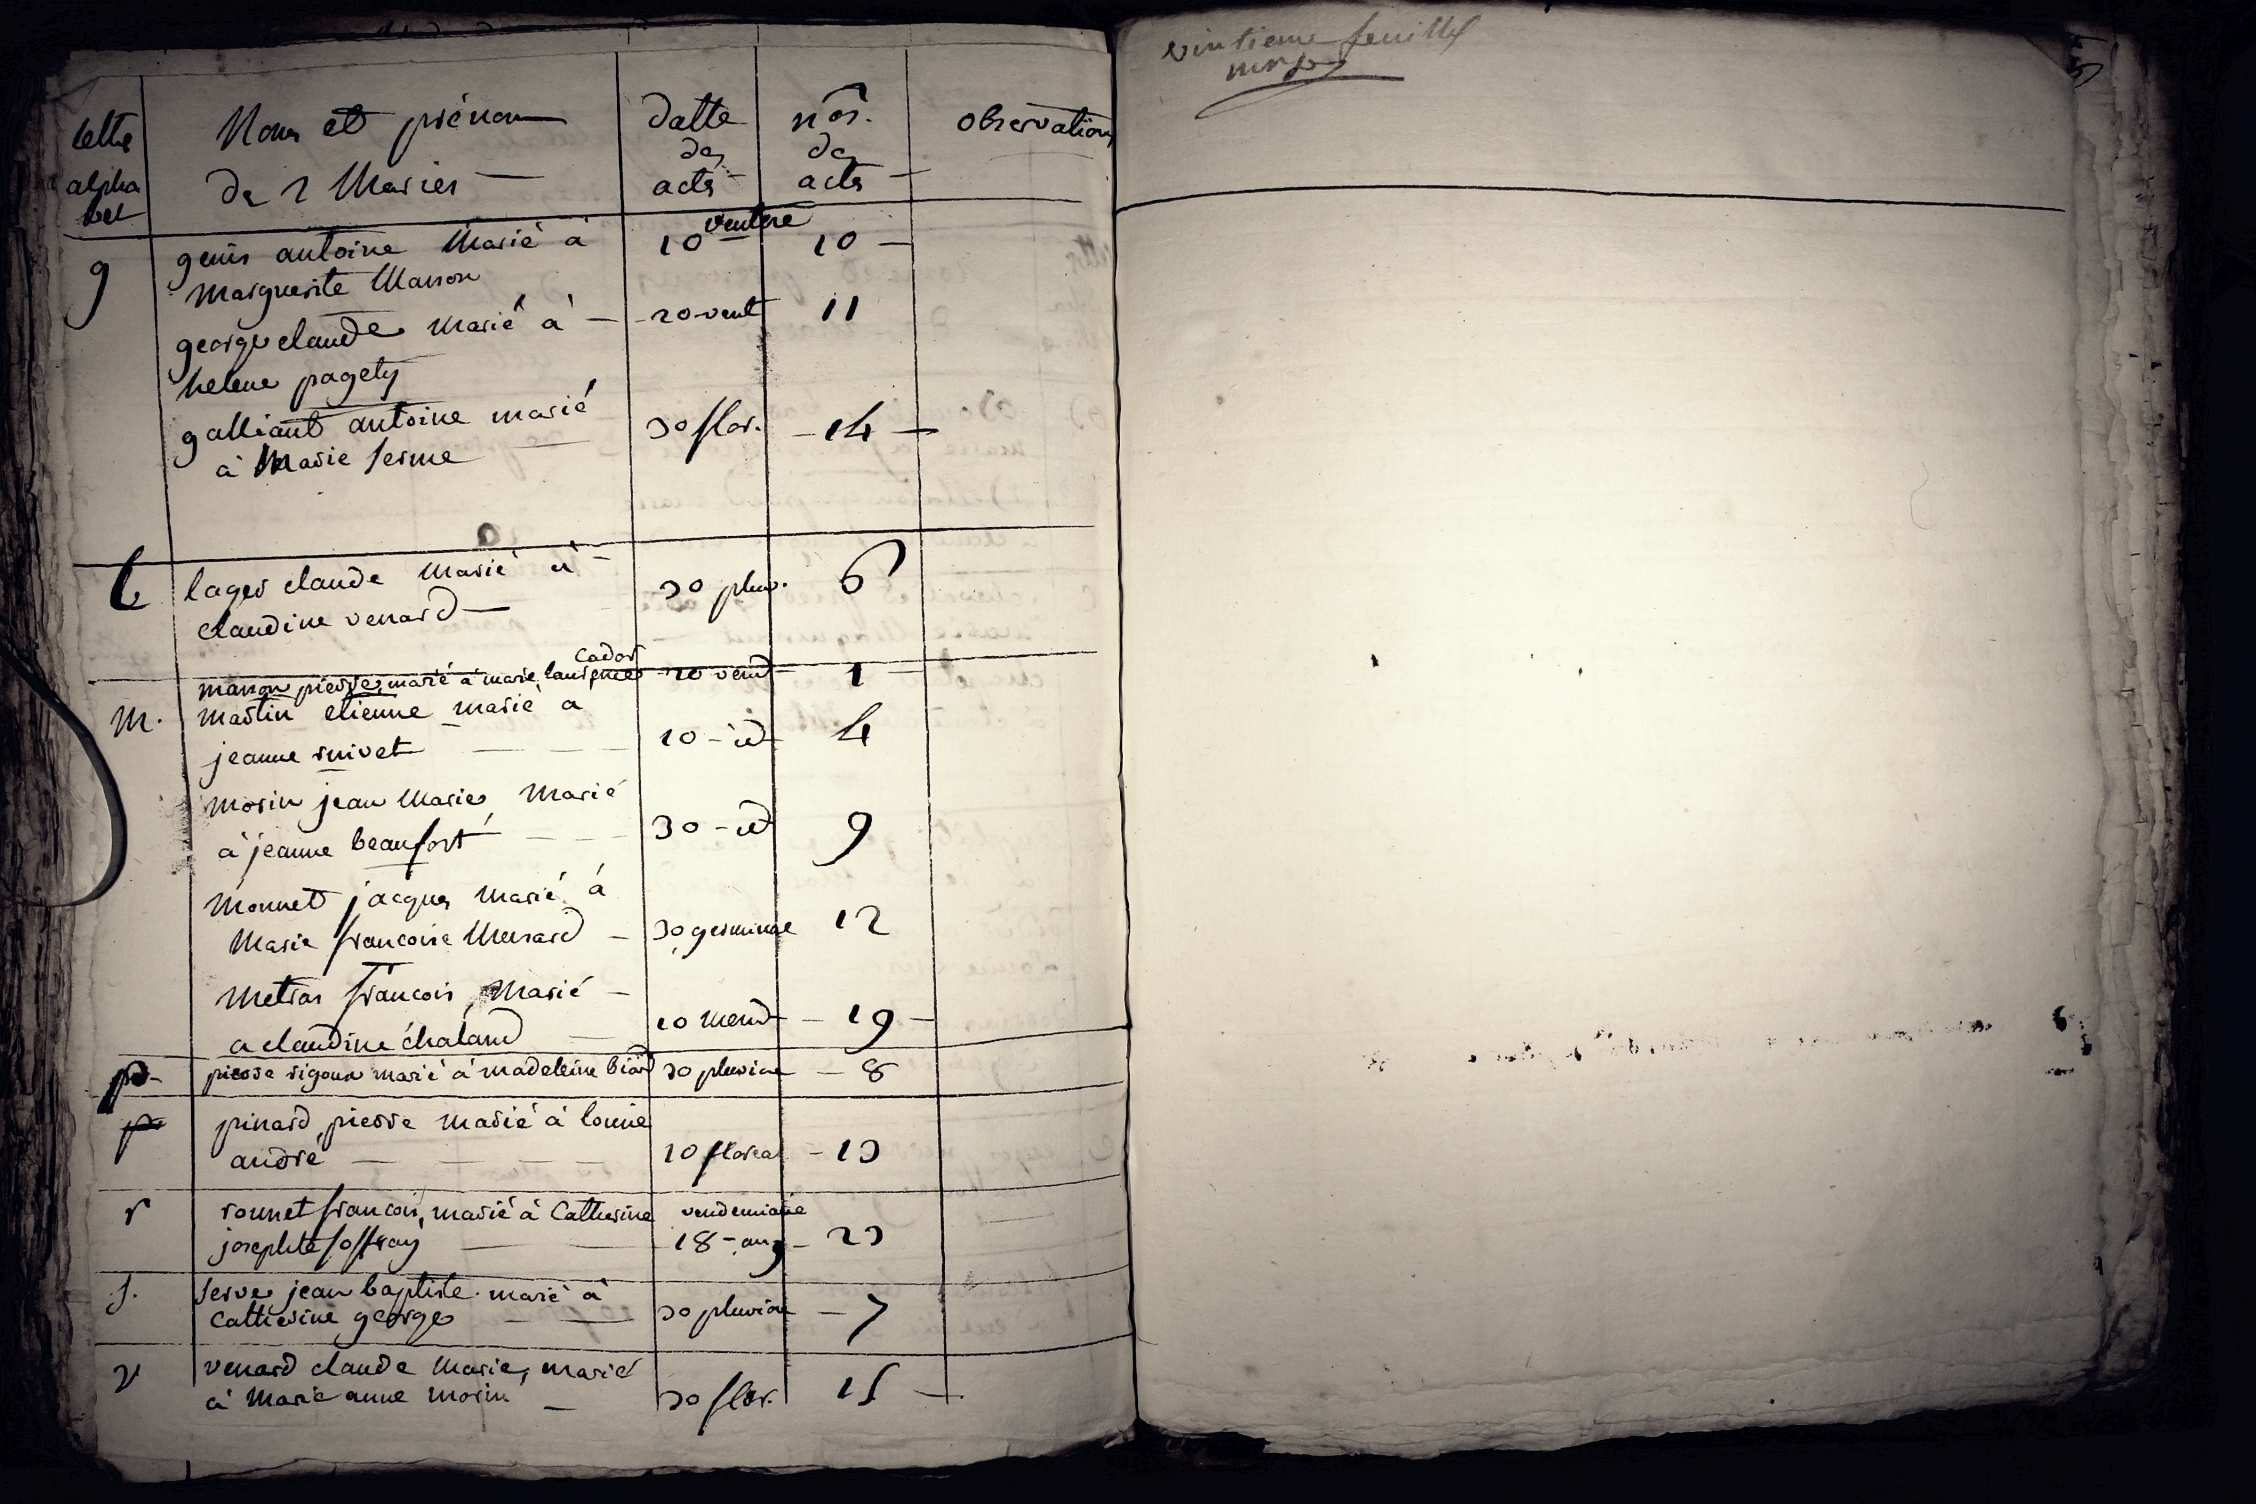 lettre Noms et prénom datte nos. observation
alphabet de 2 Mariés des actes des actes
g genis antoine Marié à 10 ventose 10
Marguerite Manon
george claude Marié à 20 vent 11
helene pagety
galliant antoine marié 30 flor. 14
à Marie serme
L lager claude Marié à 30 pluv. 6
claudine venard
cador
manon pierre, marié à marie 20 vend 1
m. martin etienne marié a
jeanne rnivet 10 - id 4
morin jean Marie, Marié
à jeanne beaufort 30 - id 9
monnet jacques marié à
Marie francoise Menard 30 germinal 12
Metras francois, Marié
a claudine chaland 10 Mend 19
p pierre rigoux marié à madeleine biard 30 pluviose 8
p pinard pierre marié à louise
andré 10 floreal 13
r ronnet francois, marié à Catherine vendemiaire
josephte soffray 18 - an 9 23
s. serve jean baptiste marié à
catherine george 30 pluviose 7
v venard claude Marie, marié
à Marie anne morin 30 flor. 15
vintieme feuille